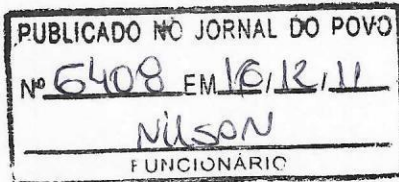 PUBLICADO NO JORNAL DO POVO
Nº 6408 EM 16/12/11
Nilson
FUNCIONÁRIO